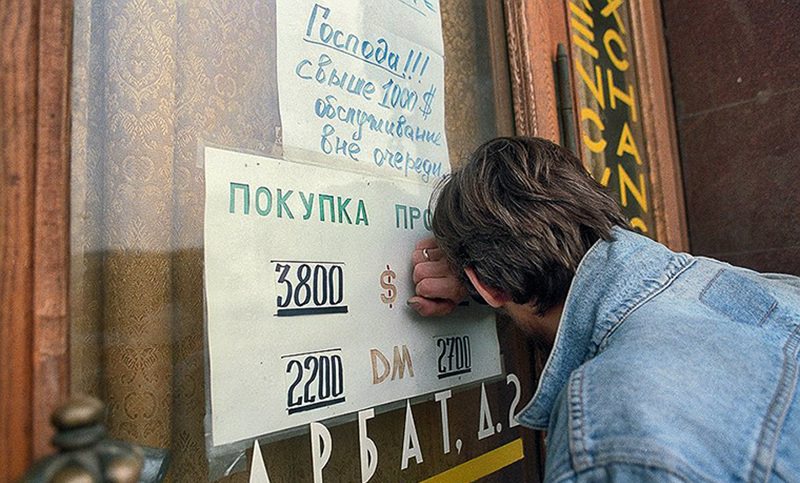 Господа!!!
свыше 1000 $
обслуживание
вне очереди
ПОКУПКА ПРО
3800 $
2200 DM 2700
АРБАТ, Д. 2